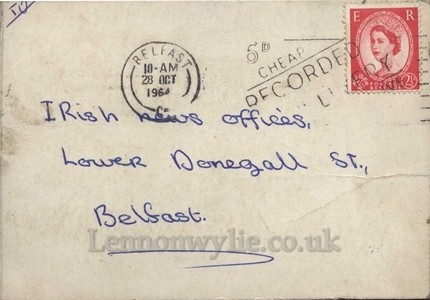 TO
BELFAST
10-AM
28 OCT
196
6D
CHEAP
RECORDED
E R
2½
IRish news offices,
Lower Donegall St.,
Belfast.
Lennonwylie.co.uk